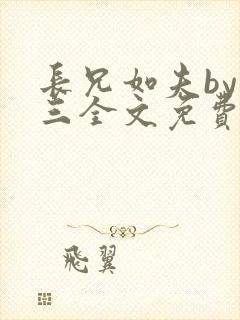 長兄如夫by
三全文免費
飛翼